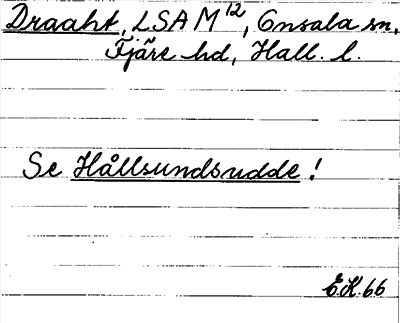 Draaht, LSA M¹², Onsala sn,
Fjäre hd, Hall. l.
Se Hållsundsudde!
E.K. 66